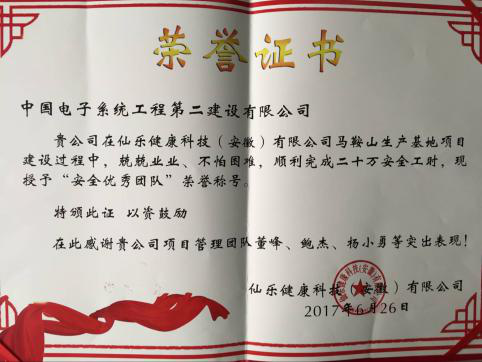 荣誉证书
中国电子系统工程第二建设有限公司
贵公司在仙乐健康科技（安徽）有限公司马鞍山生产基地项目
建设过程中，兢兢业业、不怕困难，顺利完成二十万安全工时，现
授予“安全优秀团队”荣誉称号。
特颁此证 以资鼓励
在此感谢贵公司项目管理团队董峰、鲍杰、杨小勇等突出表现！
仙乐健康科技（安徽）有限公司
2017年6月26日